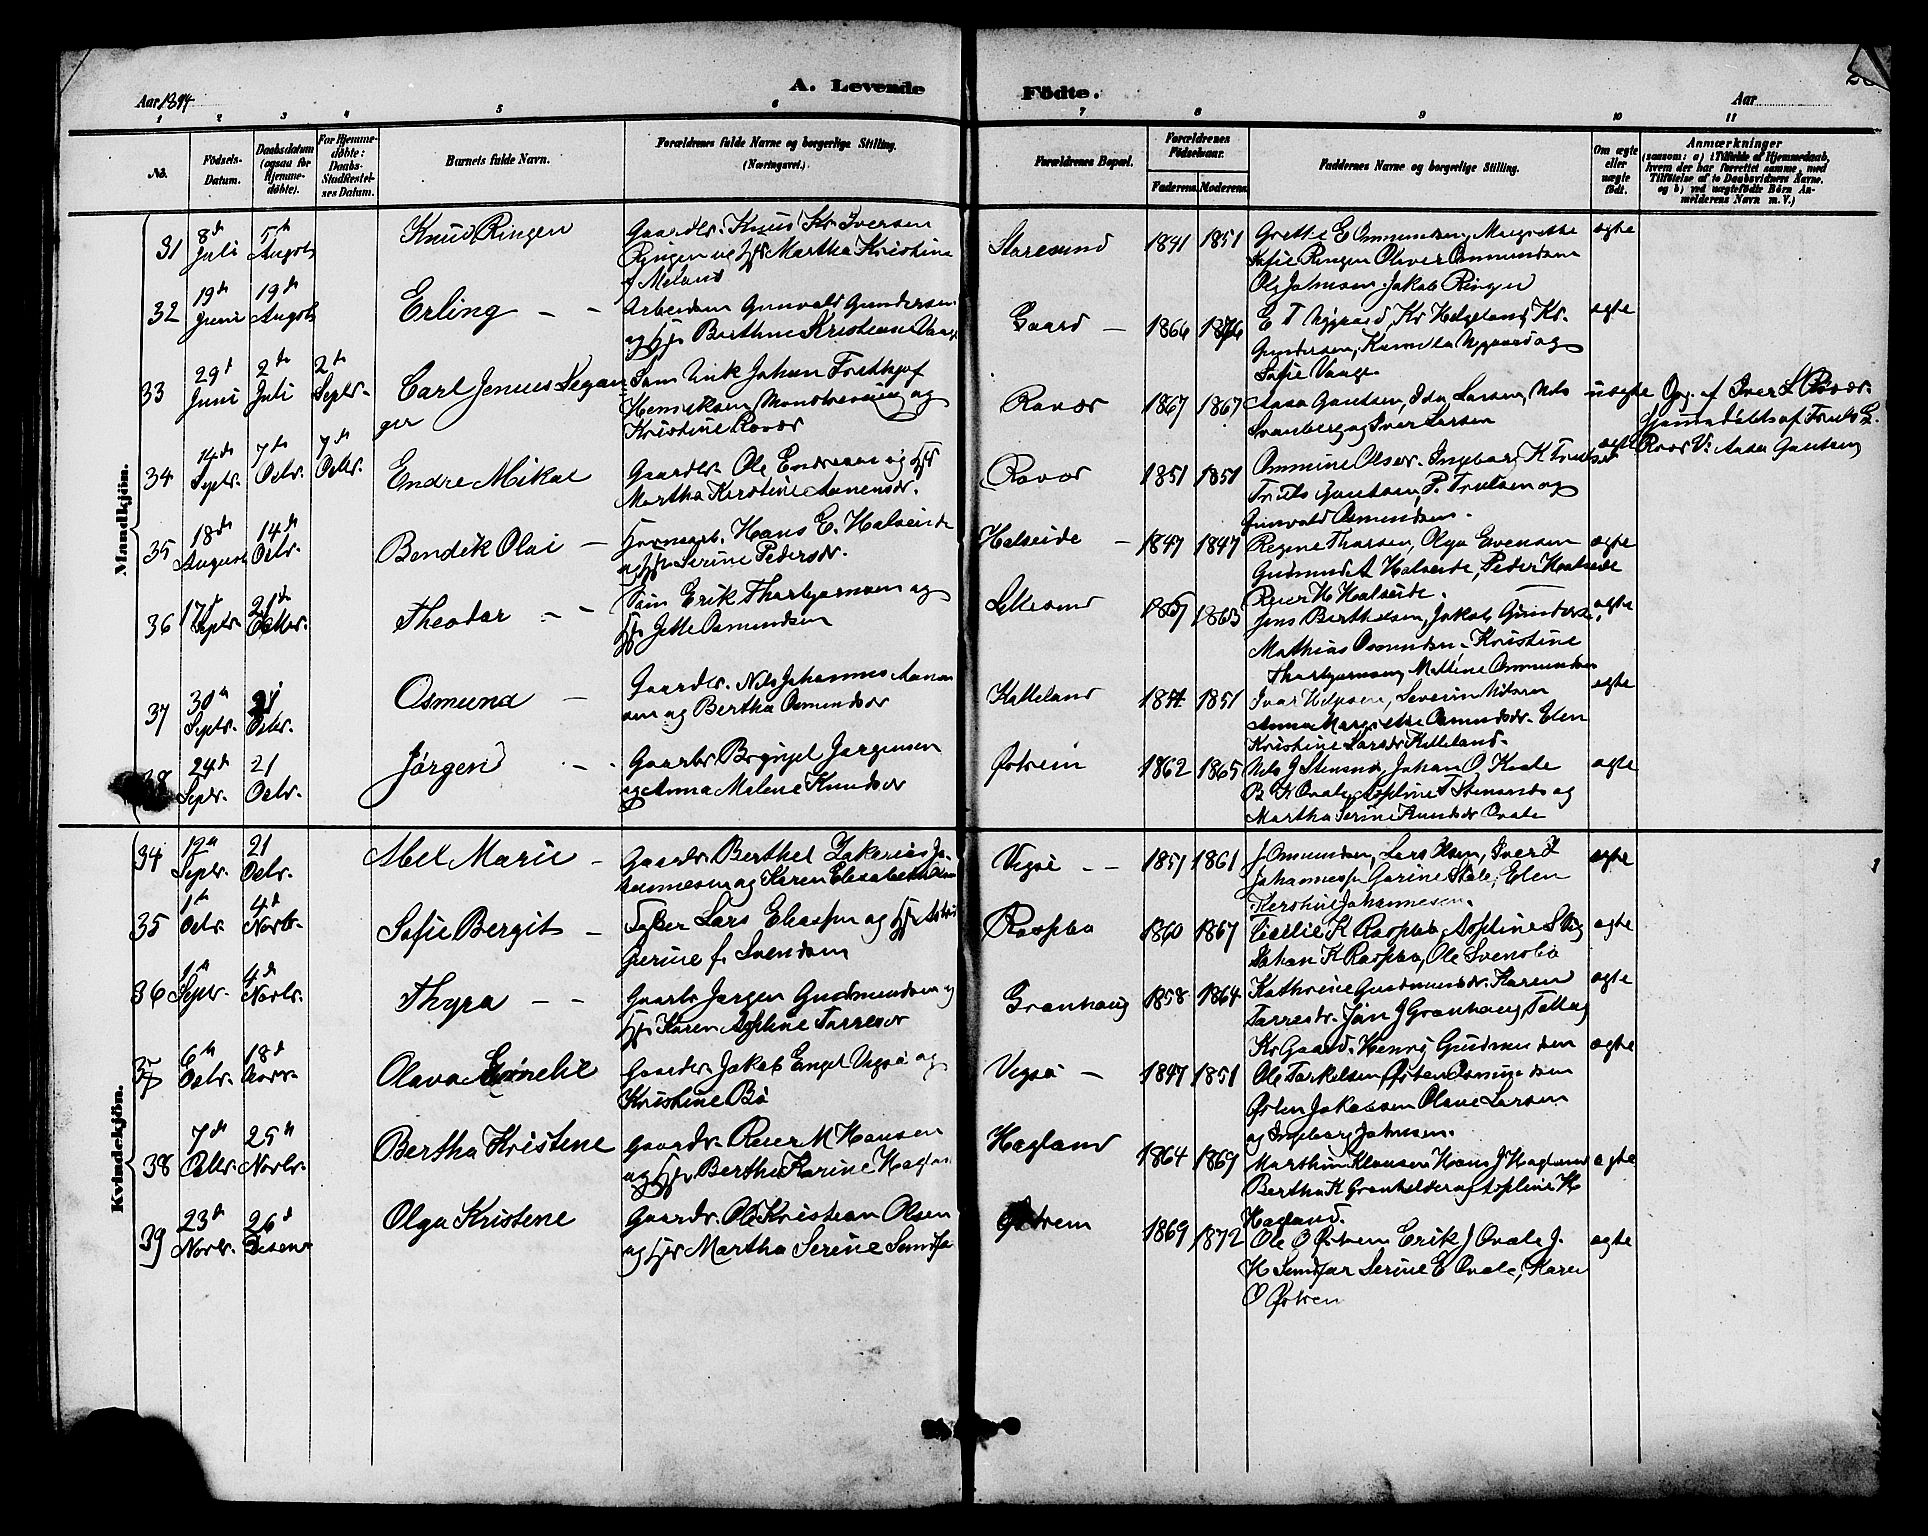 Aar 1894
A. Levende
Födte.
Aar
1 2 3 4 5 6 7 8 9 10 11
No.
Födsels-
Datum.
Daabsdatum
(ogsaa for
Hjemme-
döbte).
For Hjemme-
döbte:
Daabs-
Stadfæstel-
ses Datum.
Barnets fulde Navn.
Forældrenes fulde Navne og borgerlige Stilling.
(Næringsvei.)
Forældrenes Bopæl.
Forældrenes
Födselsaar.
Faderens Moderens
Faddernes Navne og borgerlige Stilling.
Om ægte
eller
uægte
födt.
Anmærkninger
(saasom: a) i Tilfælde af Hjemmedaab,
hvem der har forrettet samme, med
Tilföielse af to Daabsvidners Navne,
og b) ved uægtefödte Börn An-
melderens Navn m. V.)
Mandkjön.
31 8de Juli 5te Augst Knud Ringen
Gaardbr. Knud Kr Iversen
Ringen og Hfr Martha Kristine
f Meland
Storesund 1841 1851
Grethe E Ommundsen, Margrethe
Sofie Ringen Oliver Ommundsen
Ole Johnsen, Jakob Ringen
ægte
32 19de Juni 19de Augst Erling - -
Arbeidsm Gunvald Gundersen
og Hfr Berthine Kristense Vaage
Gaard - 1866 1876
E T Nygaard, Kr Helgeland, Kr.
Gundersen, Kamilla Nygaard og
Sofie Vaage
ægte
33 29de Juni 2de Juli 2de Septr. Carl Jenius Segan
ger
Søm Unk Johan Fridthjof
Henriksen, og
Kristine Røvær
Røvær 1867 1867
Aasa Gautsen, Ida Larsen, Nils
Svanberg og Iver Larsen
uægte
Opg. af Iver L Røvær.
Hjemmedøbt af Truls G.
Røvær V: Aasa Gautsen
34 14de Septr. 7de Octbr. 7de Octbr. Endre Mikal
Gaardbr. Ole Endresen og Hfr
Martha Kirstine Aanensdr.
Røvær 1851 1851
Ommine Olsdr. Ingborg K Trulsdr
Truls Gautsen, P. Trulsen og
Gunvald Osmundsen.
ægte
35 18de August 14de Octbr. Bendik Olai -
Hans E. Halseide
og Hfr Serine Pedersdr.
Halseide - 1847 1847
Regine Tharsen, Olga Evensen
Gudmund A Halseide, Peder Halseide
Reier H Halseide.
ægte
36 17de Septr. 21de Octbr. Theodor - -
Søm Erik Tharbjørnsen og
Hfr Jette Osmundsen
Lillesund 1867 1863
Jens Berthelsen, Jakob Gunders.
Mathias Osmundsen, Kristine
Tharbjørnsen, Malline Ommundsen
ægte
37 30te Septr. 21 Octbr. Osmund -
Gaardbr. Nils Johannes Aanon
sen og Bertha Osmundsdr
Kalleland 1854 1851
Ivar Helgesen, Severin Nilsen
Anna Margrethe Osmundsdr. Elen
Kristine Larsdr Kalleland.
ægte
38 24de Septr. 21 Octbr. Jørgen - -
Gaardbr Brynjel Jørgensen
og Anna Malene Knudsdr
Østrem 1862 1865
Nils J Stensnes, Johan O Kvale
B K Qvale, Asseline T Stensnes og
Martha Serine Knudsdr Qvale
ægte
Kvindekjön.
34 12te Septr. 21 Octbr. Abel Marie -
Gaardbr. Berthel Zakarias Jo-
hannesen og Karen Elisabeth
Vigsø - - 1851 1861
J Ommundsen, Lars Olsen, Iver J
Johannessen Garine Støle, Elen
Kerstine Johannesen.
ægte
35 1te Octbr. 4de Novbr. Sofie Bergit -
Lars Eliassen og Hfr
Serine f. Svendsen
Rossebø 1860 1867
K Rossebø, Asseline
Johan K Rossebø, Ole Svensbø
ægte
36 1te Septr. 4de Novbr. Thyra - -
Gaardbr Jørgen Gudmundsen og
Hfr Karen Asseline Tarresdr
Grønhaug 1858 1864
Kathrine Gudmundsdr. Karen
Tarresdr. Jon J Grønhaug,
Kr Gaard. Henrij Gudmundsen
ægte
37 6te Octbr. 18de Novr. Olava Emelie
Gaardbr Jakob Engel Vigsø og
Kristine Bø
Vigsø - 1847 1851
Ole Torkelsen Østen Osmundsen
Østen Jakobsen Olave Larsen
og Ingeborg Johnsen.
ægte
38 7de Octbr. 25te Novbr. Bertha Kristene
Gaardbr. Reier M Hansen
og Hfr Bertha Karine Hagland
Hagland 1864 1869
Marthin Klausen Hans J Hagland
Bertha K Grønhelder og Asseline H
Hagland.
ægte
39 23de Novbr. 26de Desem. Olga Kristene
Gaardbr. Ole Kristian Olsen
og Hfr Martha Serine Sundfør
Østrem 1869 1872
Ole O Østrem Erik J Qvale J.
K Sundfør Serine E Qvale, Karen
O Østrem
ægte